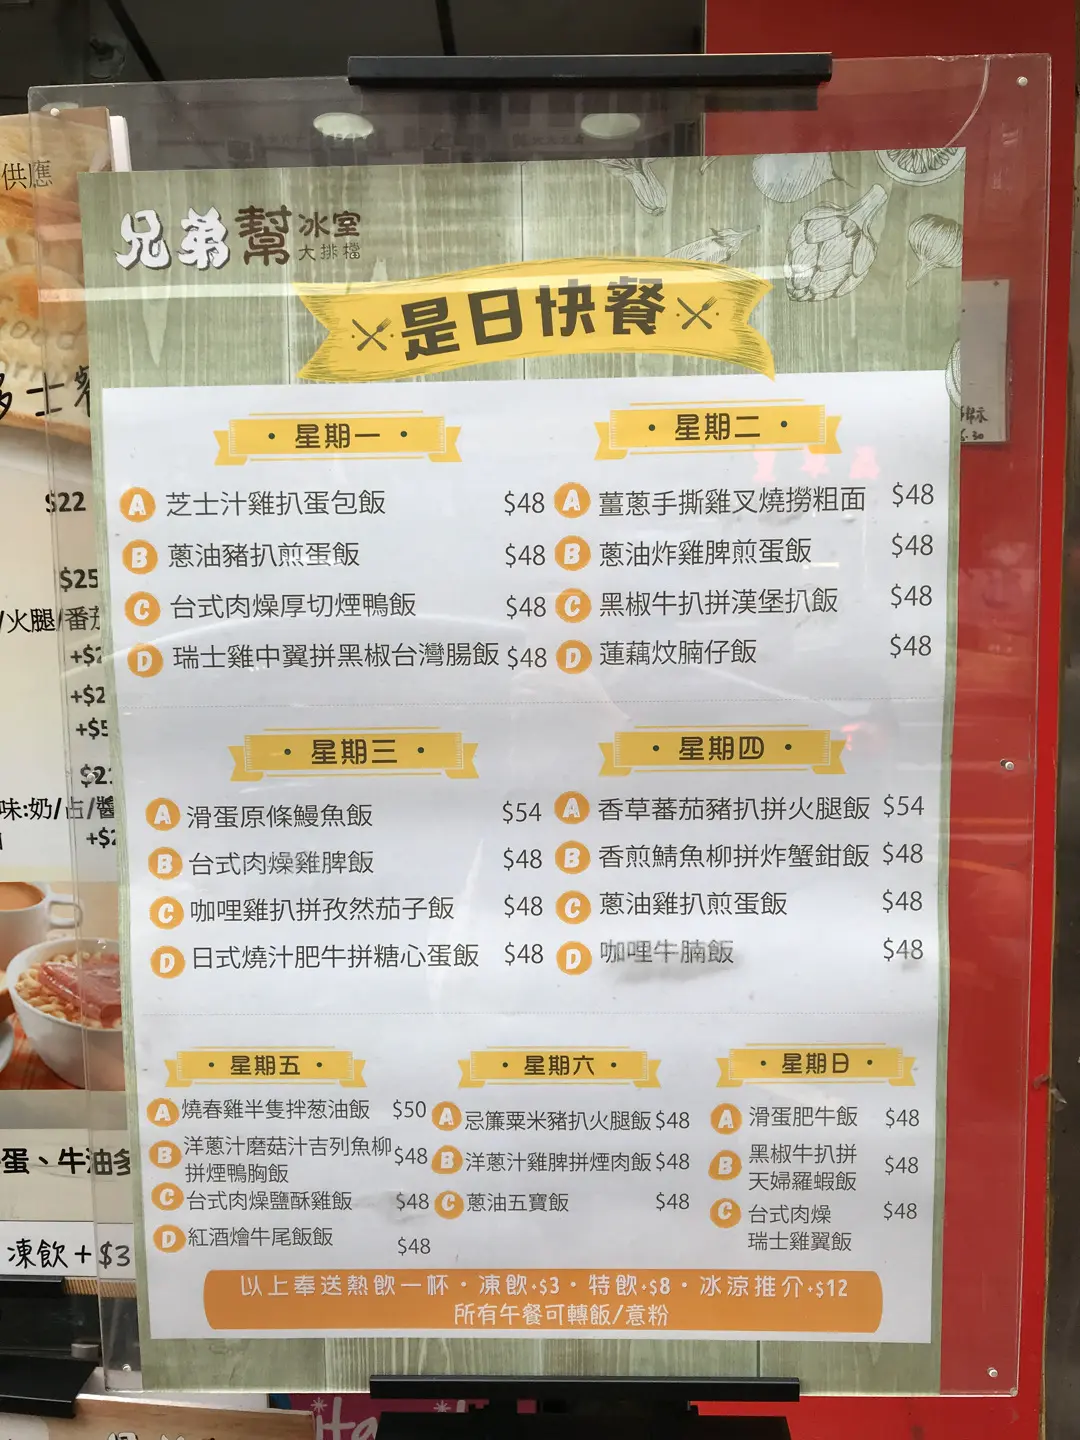 供應
兄弟幫冰室
大排檔
是日快餐
星期一
A 芝士汁雞扒蛋包飯 $48
B 蔥油豬扒煎蛋飯 $48
C 台式肉燥厚切煙鴨飯 $48
D 瑞士雞中翼拼黑椒台灣腸飯 $48
星期二
A 薑蔥手撕雞叉燒撈粗面 $48
B 蔥油炸雞脾煎蛋飯 $48
C 黑椒牛扒拼漢堡扒飯 $48
D 蓮藕炆腩仔飯 $48
星期三
A 滑蛋原條鰻魚飯 $54
B 台式肉燥雞脾飯 $48
C 咖哩雞扒拼孜然茄子飯 $48
D 日式燒汁肥牛拼糖心蛋飯 $48
星期四
A 香草蕃茄豬扒拼火腿飯 $54
B 香煎鯖魚柳拼炸蟹鉗飯 $48
C 蔥油雞扒煎蛋飯 $48
D 咖哩牛腩飯 $48
星期五
A 燒春雞半隻拌葱油飯 $50
B 洋蔥汁磨菇汁吉列魚柳 $48
拼煙鴨胸飯
C 台式肉燥鹽酥雞飯 $48
D 紅酒燴牛尾飯飯 $48
星期六
A 忌簾粟米豬扒火腿飯 $48
B 洋蔥汁雞脾拼煙肉飯 $48
C 蔥油五寶飯 $48
星期日
A 滑蛋肥牛飯 $48
B 黑椒牛扒拼 $48
天婦羅蝦飯
C 台式肉燥 $48
瑞士雞翼飯
以上奉送熱飲一杯・凍飲+$3・特飲+$8・冰涼推介+$12
所有午餐可轉飯/意粉
$22
$25
/火腿/番茄
味:奶/占/醬
蛋、牛油多
凍飲+$3